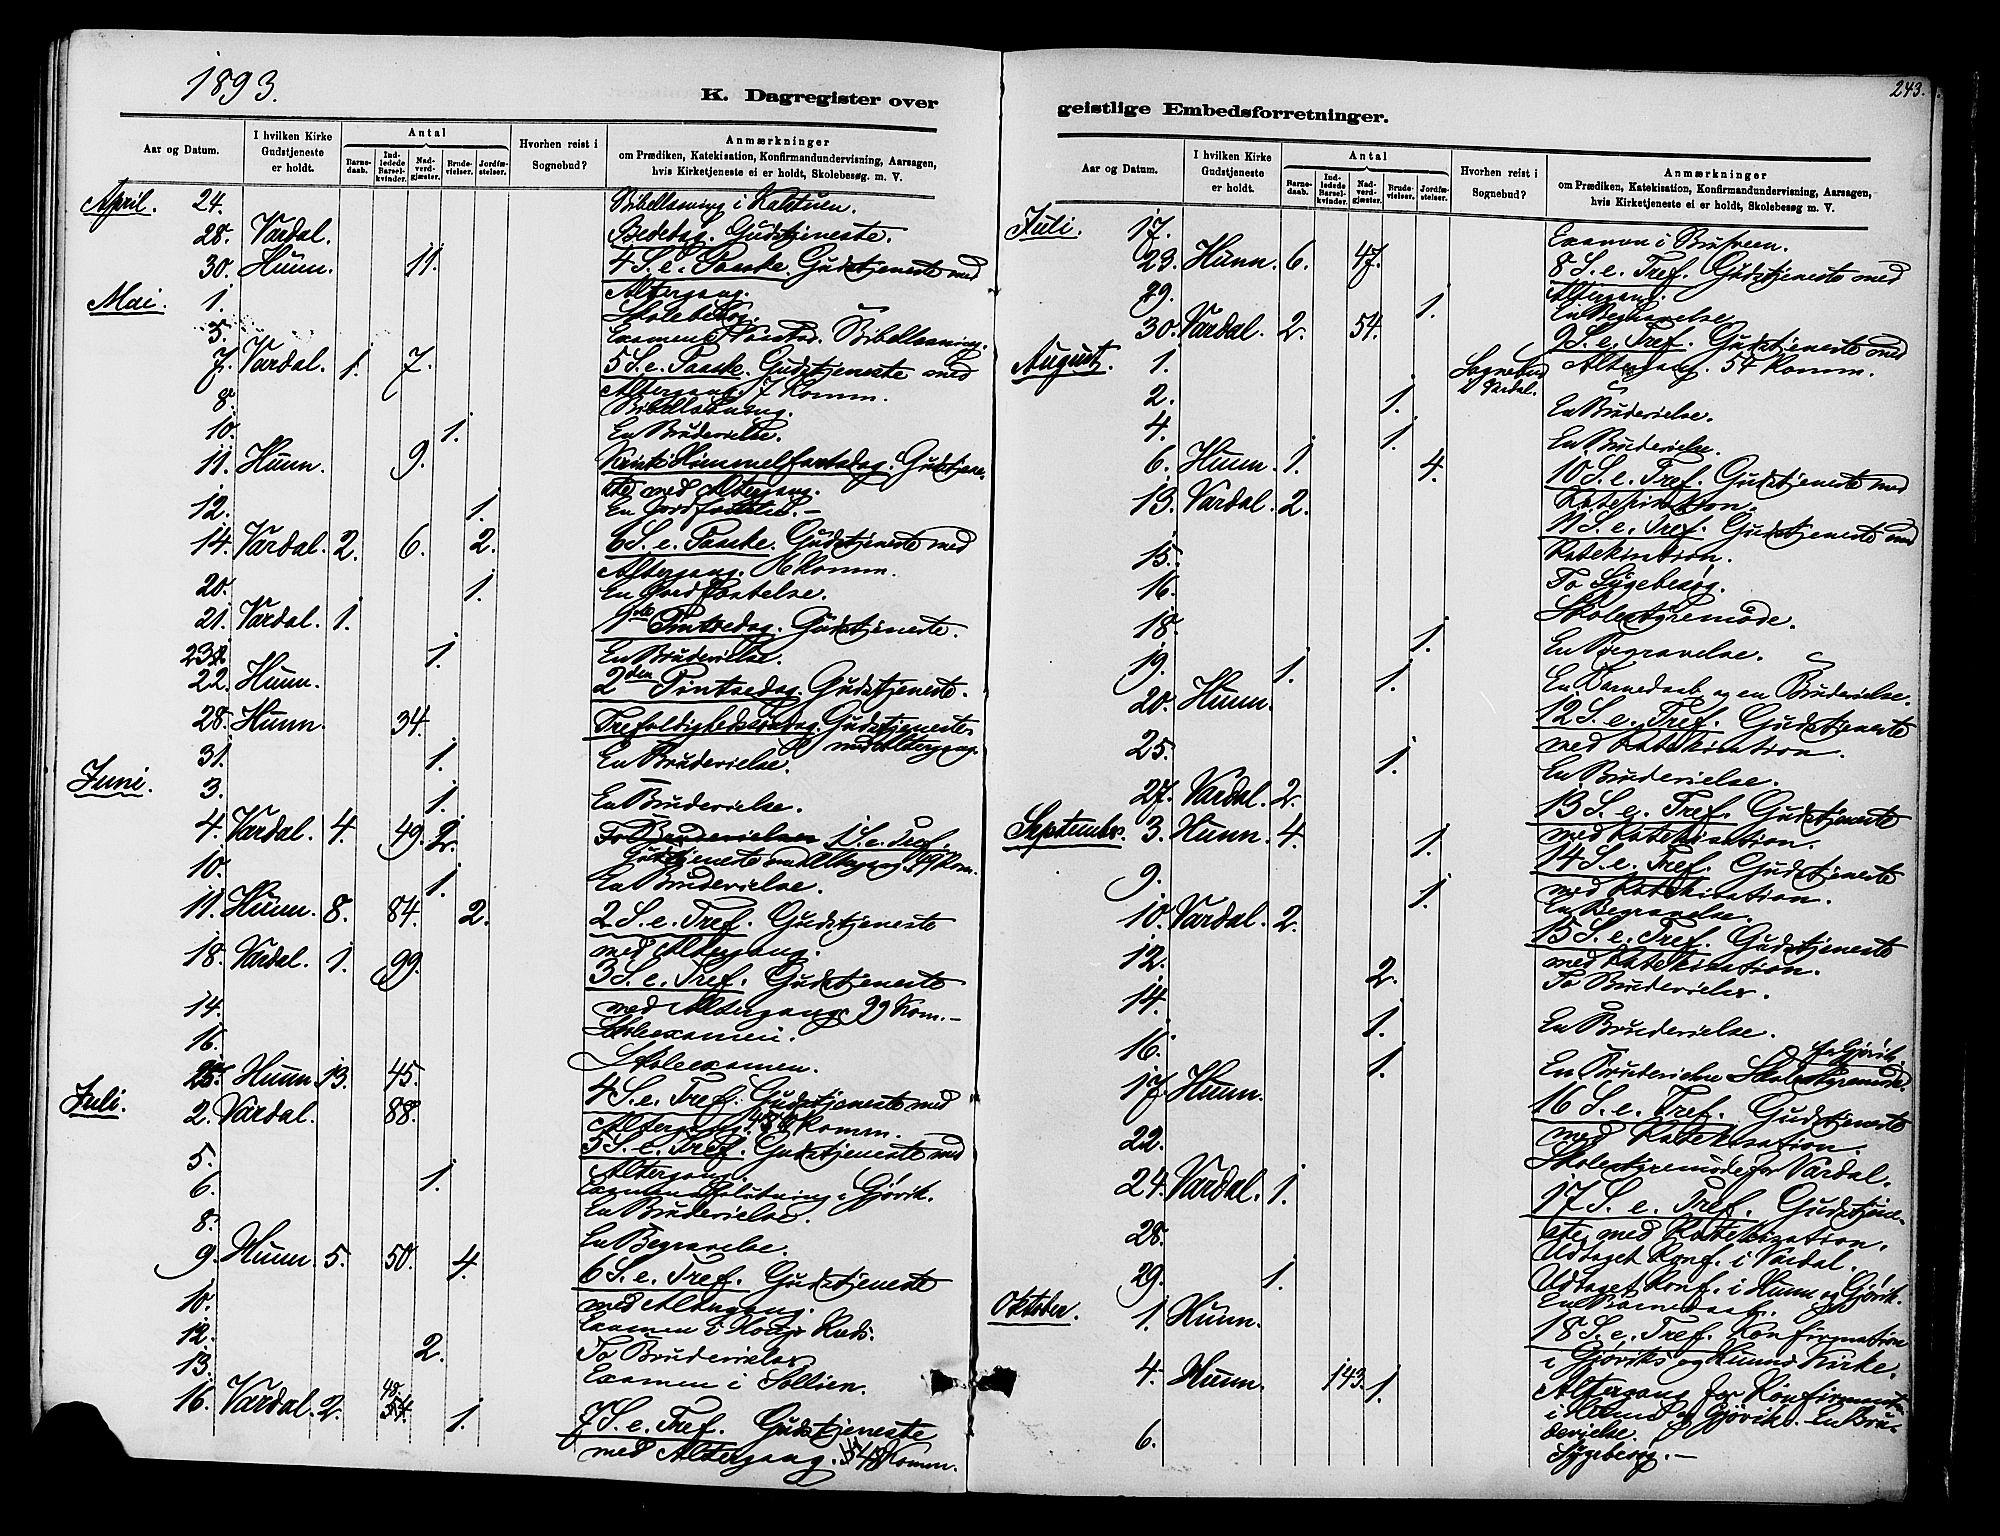 1893.
K. Dagregister over
Aar og Datum.
I hvilken Kirke Gudstjeneste er holdt.
Antal
Barne-daab.
Ind-ledede Barsel-kvinder.
Nad-verd-gjæster.
Brude-vielser.
Jordfæ-stelser.
Hvorhen reist i Sognebud?
Anmærkninger
om Prædiken, Katekisation, Konfirmandundervisning, Aarsagen,
hvis Kirketjeneste ei er holdt, Skolebesøg m. V.
April. 24. Bibellæsning i
28. Vardal. Bededag. Gudstjeneste.
30. Hunn. 11. 4 S. e. Paaske. Gudstjeneste med
Altergang.
Mai. 1. Skolebesøg.
5. Examen i Bibellæsning.
7. Vardal. 1. 7. 5 S. e. Paaske. Gudstjeneste med
Altergang 7 Komm.
8. Bibellæsning.
10. 1. En Brudevielse.
11. Hunn. 9. Kristi Himmelfartsdag. Gudstjene-
ste med Altergang.
12. 1. En Jordfæstelse.-
14. Vardal. 2. 6. 2. 6 S. e. Paaske. Gudstjeneste med
Altergang. Komm.
20. 1. En Jordfæstelse.
21. Vardal. 1. 1ste Pintsedag. Gudstjeneste.
23. 1. En Brudevielse.
22. Hunn. 2den Pintsedag. Gudstjeneste.
28. Hunn. 34. Trefoldighedssøndag. Gudstjeneste
med Altergang.
31. 1. En Brudevielse.
Juni. 3. 1. En Brudevielse.
4. Vardal. 4. 49. 2. To Brudevielser 1 S. e. Tref.
Gudstjeneste med Altergang 49 Kom.
10. 1. En Brudevielse.
11. Hunn. 8. 84. 2. 2 S. e. Tref. Gudstjeneste
med Altergang.
18. Vardal. 1. 99. 3 S. e. Tref. Gudstjeneste
med Altergang 99 Kom.-
14. Skoleexamen.
16. Skoleexamen.
25. Hunn. 13. 45. 4 S. e. Tref. Gudstjeneste med
Altergang 45 Komm.
Juli. 2. Vardal. 88. 5 S. e. Tref. Gudstjeneste med
Altergang.
5. Examensafslutning i Gjøvik.
6. 1. En Brudevielse.
8. En Begravelse.
9. Hunn. 5. 50. 4. 6 S. e. Tref. Gudstjeneste
med Altergang.
10. Examen i
12. 2. To Brudevielser.
13. Examen i Sollien.
16. Vardal. 2. 48. 1. 7 S. e. Tref. Gudstjeneste
med Altergang. 48 Komm.
243.
geistlige Embedsforretninger.
Aar og Datum.
I hvilken Kirke Gudstjeneste er holdt.
Antal
Barne-daab.
Ind-ledede Barsel-kvinder.
Nad-verd-gjæster.
Brude-vielser.
Jordfæ-stelser.
Hvorhen reist i Sognebud?
Anmærkninger
om Prædiken, Katekisation, Konfirmandundervisning, Aarsagen,
hvis Kirketjeneste ei er holdt, Skolebesøg m. V.
Juli. 17. Examen i
23. Hunn. 6. 47. 8 S. e. Tref. Gudstjeneste med
Altergang.
29. 1. En Begravelse.
30. Vardal. 2. 54. 9 S. e. Tref. Gudstjeneste med
Altergang. 54 Komm.
August. 1. Sognebud i Vardal.
2. 1. En Brudevielse.
4. 1. En Brudevielse.
6. Hunn. 1. 4. 10 S. e. Tref. Gudstjeneste med
Katekisation.
13. Vardal. 2. 11 S. e. Tref. Gudstjeneste med
Katekisation.
15. To Sygebesøg.
16. Skolestyremøde.
18. 1. En Begravelse.
19. 1. 1. En Barnedaab og en Brudevielse.
20. Hunn. 12 S. e. Tref. Gudstjeneste
med Katekisation.
25. 1. En Brudevielse.
27. Vardal. 2. 13 S. e. Tref. Gudstjeneste
med Katekisation.
September. 3. Hunn. 4. 1. 14 S. e. Tref. Gudstjeneste
med Katekisation.
9. 1. En Begravelse.
10. Vardal. 2. 15 S. e. Tref. Gudstjeneste
med Katekisation.
12. 2. To Brudevielser.
14. 1. En Brudevielse.
16. 1. En Brudevielse Skolestyremøde for Gjøvik.
17. Hunn. 16 S. e. Tref. Gudstjeneste
med Katekisation.
22. Skolestyremøde for Vardal.
24. Vardal. 1. 17 S. e. Tref. Gudstjene-
ste med Katekisation.
28. Udtaget Konf. i Vardal.
29. 1. Udtaget Konf. i Hunn og Gjøvik.
En Barnedaab.
Oktober. 1. Hunn. 18 S. e. Tref. Konfirmation
i Gjøviks og Hunns Kirke.
4. Hunn. 143. 1. Altergang for Konfirmanter
i Hunn og Gjøvik. En Bru-
devielse.
6. Sygebesøg.-